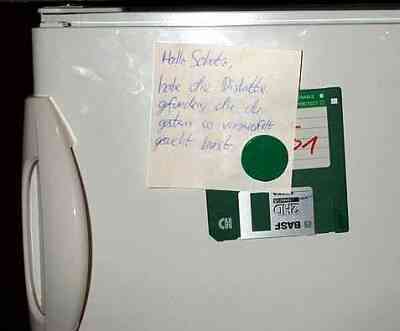 Hallo Schatz,
habe die Diskette
gefunden die du
gestern so verzweifelt
gesucht hast.
BASF
2HD